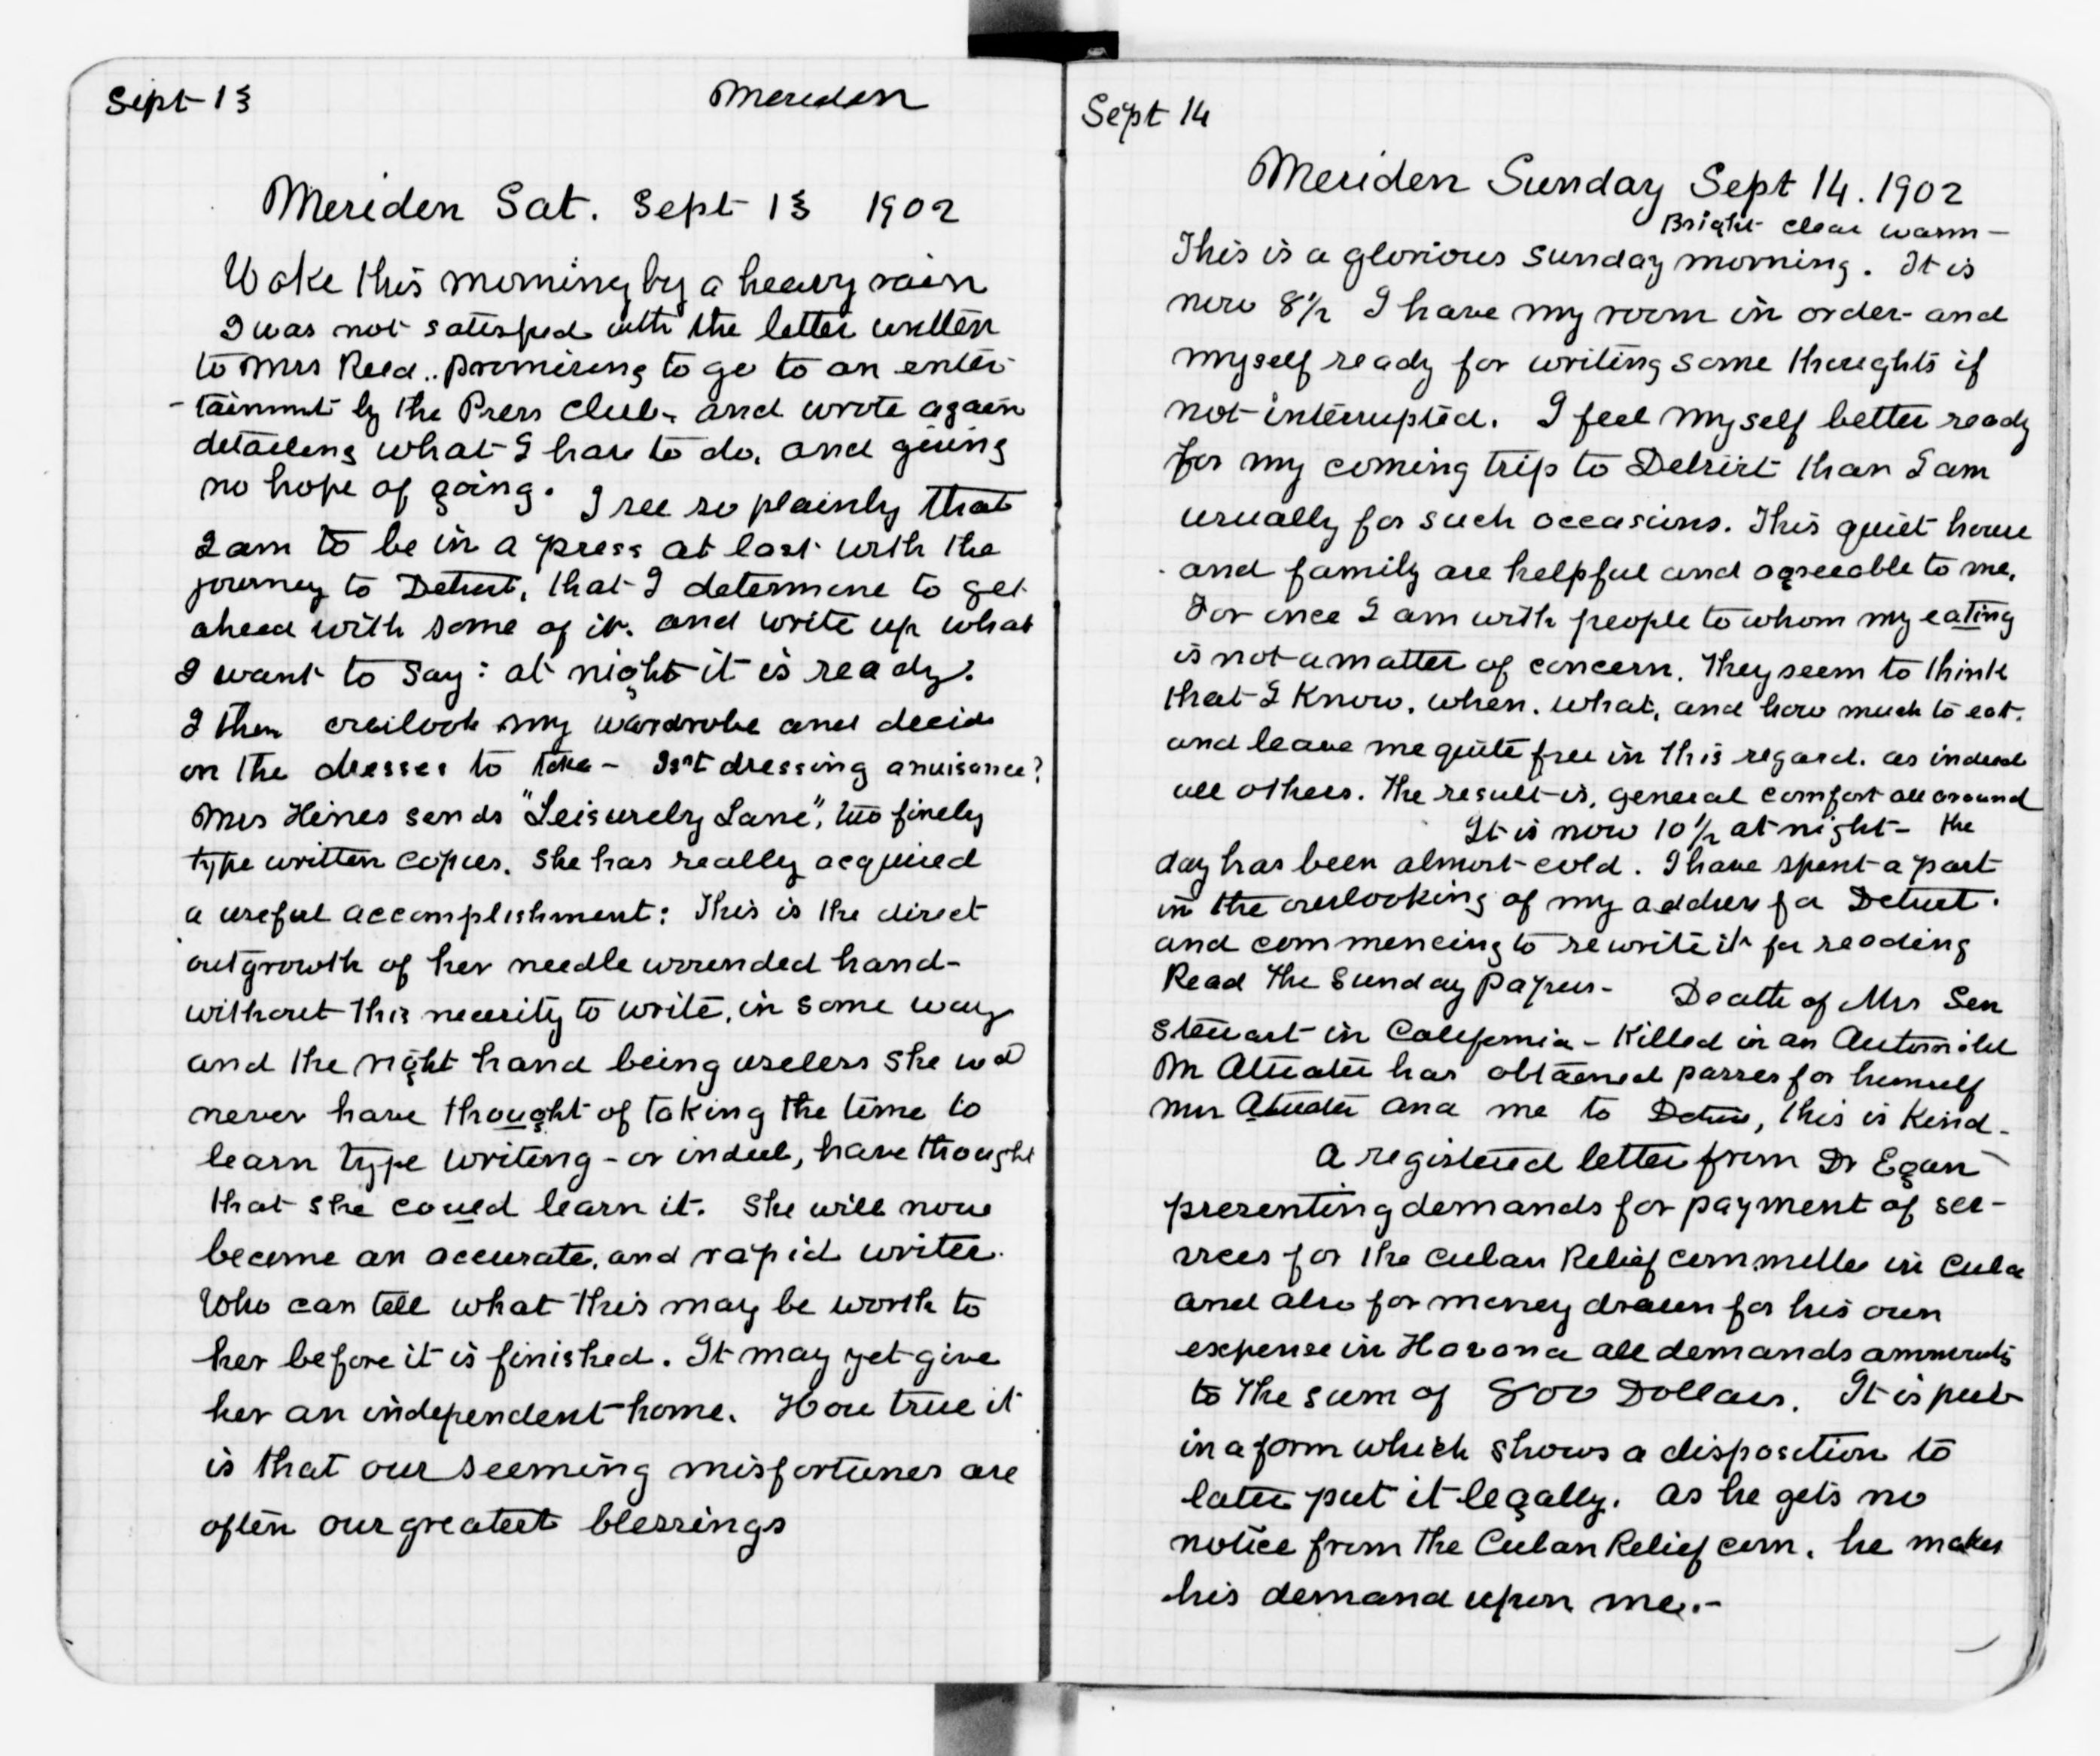 Sept 13
Meriden
Meriden Sat. Sept 13 1902
Woke this morning by a heavy rain
I was not satisfied with the letter written
to Mrs Reed.. promising to go to an enter-
-tainmnt by the Press Club, and wrote again
detailing what I have to do, and giving
no hope of going. I see so plainly that
I am to be in a press at last with the
journey to Detroit, that I determine to get
ahead with some of it. and write up what
I want to say: at night it is ready.
I then overlook my wardrobe and decide
on the dresses to take - Isn't dressing a nuisance?
Mrs Hines sends "Leisurely Lane", two finely
type written copies. She has really acquired
a useful accomplishment: This is the direct
outgrowth of her needle wounded hand-
without this necessity to write, in some way
and the right hand being useless she wd
never have thought of taking the time to
learn type writing - or indeed, have thought
that she could learn it. She will now
become an accurate, and rapid writer.
Who can tell what this may be worth to
her before it is finished. It may yet give
her an independent home. How true it
is that our seeming misfortunes are
often our greatest blessings
Sept 14
Meriden Sunday Sept 14. 1902
Bright clear warm -
This is a glorious Sunday morning. It is
now 8 1/2 I have my room in order - and
myself ready for writing some thoughts if
not interrupted. I feel myself better ready
for my coming trip to Detroit than I am
usually for such occasions. This quiet house
and family are helpful and agreeable to me.
For once I am with people to whom my eating
is not a matter of concern. They seem to think
that I know, when, what, and how much to eat.
and leave me quite free in this regard. as indeed
all others. The result is, general comfort all around
It is now 10 1/2 at night - the
day has been almost cold. I have spent a part
in the overlooking of my address for Detroit.
and commencing to rewrite it for reading
Read the Sunday papers - Death of Mrs Sen
Stewart in California - Killed in an Automobile
Mr Atwater has obtained passes for himself
Mrs Atwater and me to Detroit, this is kind -
A registered letter from Dr Egan
presenting demands for payment of ser-
vices for the Cuban Relief committee in Cuba
and also for money drawn for his own
expense in Havana all demands ammounts
to the sum of 800 Dollars. It is put
in a form which shows a disposition to
later put it legally. As he gets no
notice from the Cuban Relief com. he makes
his demand upon me.-